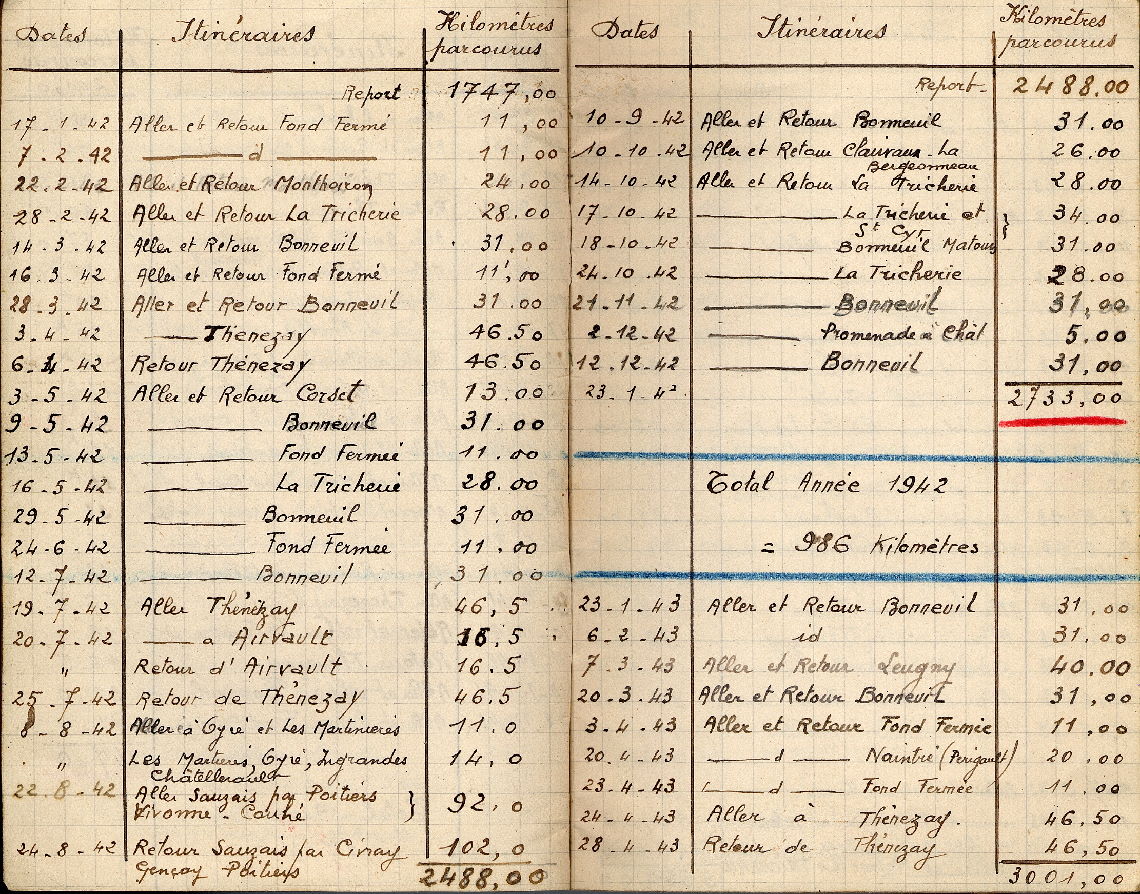 Dates Itinéraires Kilomètres parcourus
Report 1747,00
17-1-42 Aller et Retour Fond Fermé 11,00
7-2-42 —— d —— 11,00
22-2-42 Aller et Retour Monthoiron 24,00
28-2-42 Aller et Retour La Tricherie 28.00
14-3-42 Aller et Retour Bonneuil 31,00
16-3-42 Aller et Retour Fond Fermé 11,00
28-3-42 Aller et Retour Bonneuil 31.00
3-4-42 —— Thénezay 46.50
6-4-42 Retour Thénezay 46.50
3-5-42 Aller et Retour Corset 13.00
9-5-42 —— Bonneuil 31.00
13-5-42 —— Fond Fermée 11.00
16-5-42 —— La Tricherie 28.00
29-5-42 —— Bonneuil 31.00
24-6-42 —— Fond Fermée 11.00
12-7-42 —— Bonneuil 31.00
19-7-42 Aller Thénézay 46,5
20-7-42 —— a Airvault 16,5
" Retour d'Airvault 16.5
25-7-42 Retour de Thénezay 46,5
8-8-42 Aller à Oyré et Les Martinières 11.0
" Les Martières, Oyré, Ingrandes 14,0
Châtellerault
22-8-42 Aller Sauzais par Poitiers
Vivonne - Couhé } 92,0
24-8-42 Retour Sauzais par Civray 102,0
Gençay Poitiers 2488,00
Dates Itinéraires Kilomètres parcourus
Report- 2488.00
10-9-42 Aller et Retour Bonneuil 31.00
10-10-42 Aller et Retour Clairvaux-La 26.00
Bergeonneau
14-10-42 Aller et Retour La Tricherie 28.00
17-10-42 —— La Tricherie et } 34.00
St Cyr
18-10-42 —— Bonneuil Matours 31.00
24-10-42 —— La Tricherie 28.00
21-11-42 —— Bonneuil 31,00
2-12-42 —— Promenade à Chât 5.00
12-12-42 —— Bonneuil 31,00
23-1-4 2733,00
Total Année 1942
= 986 Kilomètres
23-1-43 Aller et Retour Bonneuil 31,00
6-2-43 id 31.00
7-3-43 Aller et Retour Leugny 40.00
20-3-43 Aller et Retour Bonneuil 31,00
3-4-43 Aller et Retour Fond Fermée 11,00
20-4-43 —— d —— Naintré (Périgault) 20.00
23-4-43 —— d —— Fond Fermée 11.00
24-4-43 Aller à Thénezay. 46,50
28-4-43 Retour de Thénezay 46,50
3001,00